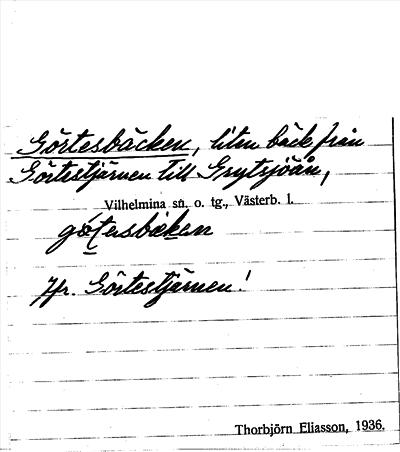 Görtesbäcken, liten bäck från
Görtestjärnen till Grytsjöån,
Vilhelmina sn. o. tg., Västerb. l.
Jfr. Görtestjärnen!
Thorbjörn Eliasson, 1936.